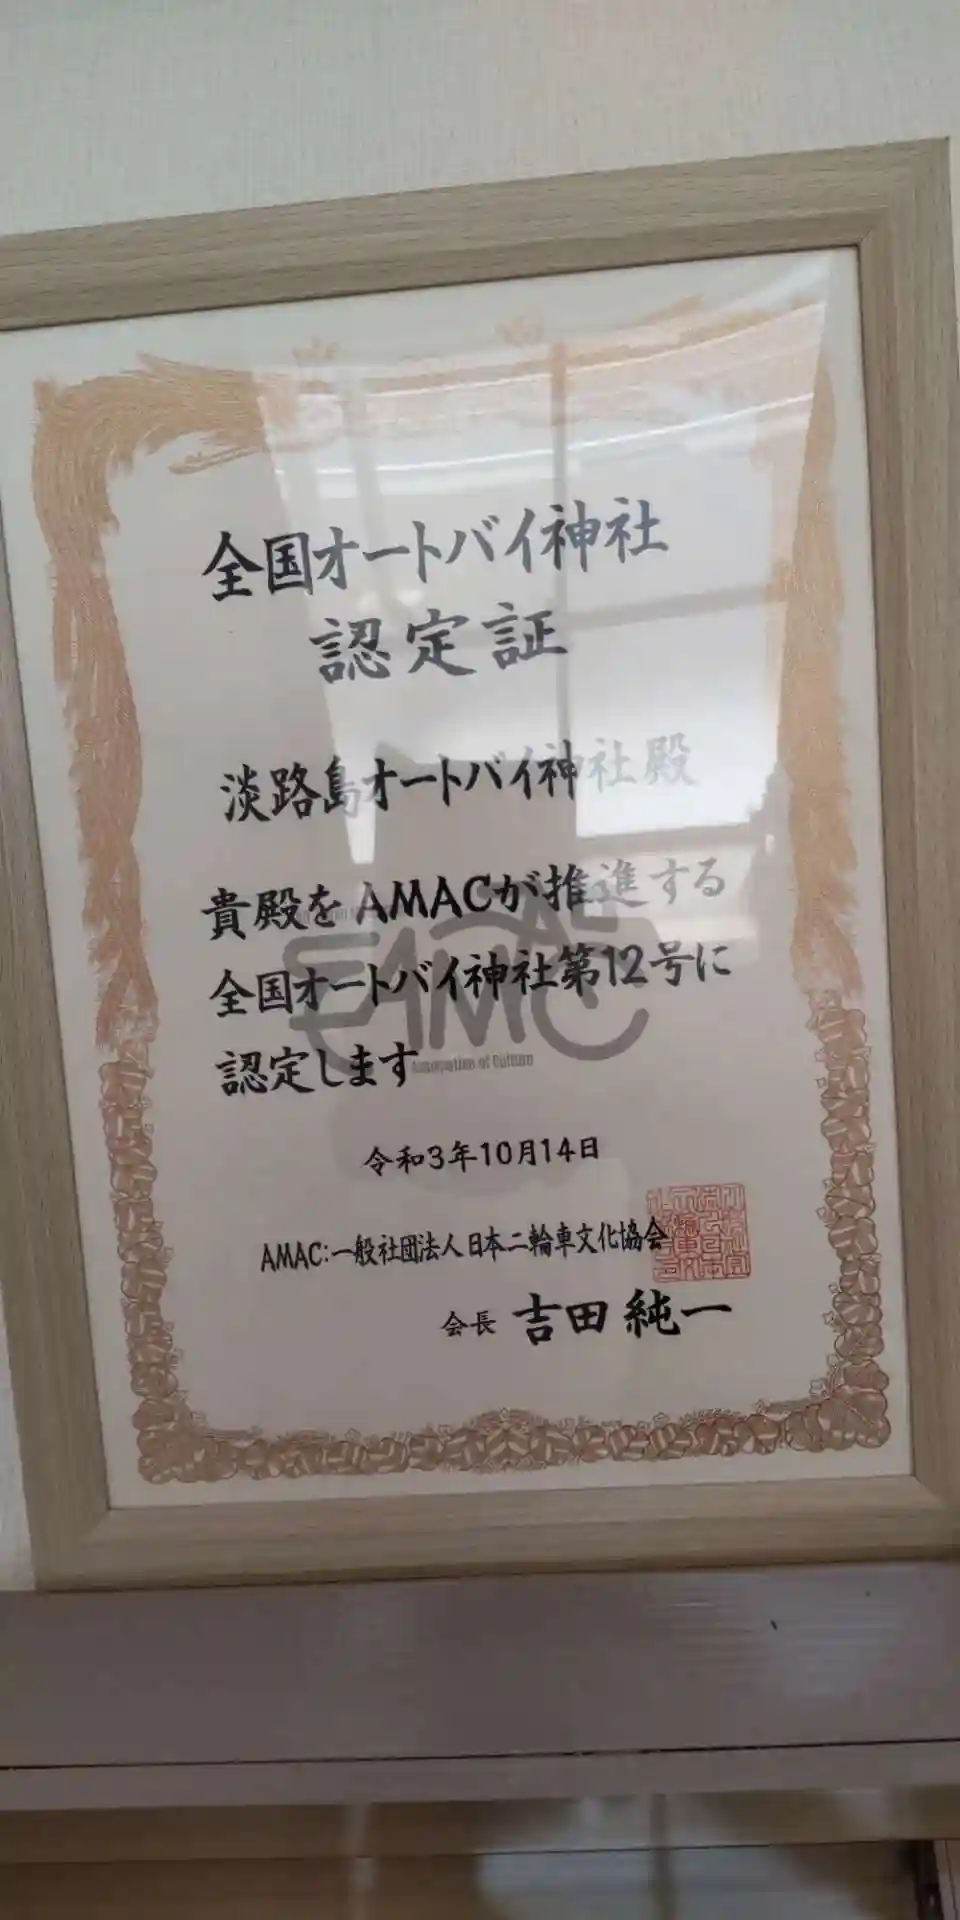 全国オートバイ神社
認定証
淡路島オートバイ神社殿
貴殿をAMACが推進する
全国オートバイ神社第12号に
認定します
Association of Culture
令和3年10月14日
AMAC:一般社団法人日本二輪車文化協会
会長 吉田純一